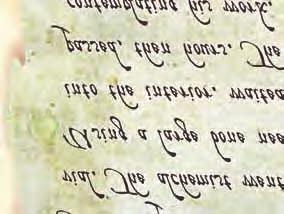 vial. The alchemist went
Using a large bone nee
into the interior, waited
passed, then hours. The
contemplating his work.